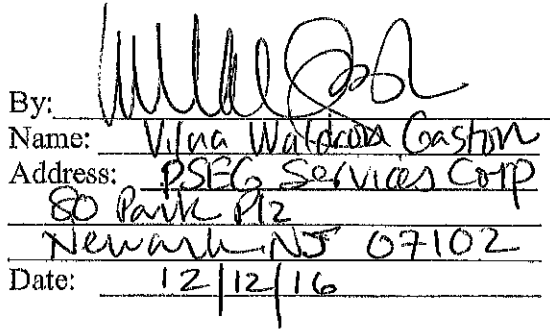 By:
Name: Vilna Waldron Gaston
Address: PSEG Services Corp
80 Park Plz
Newark NJ 07102
Date: 12/12/16